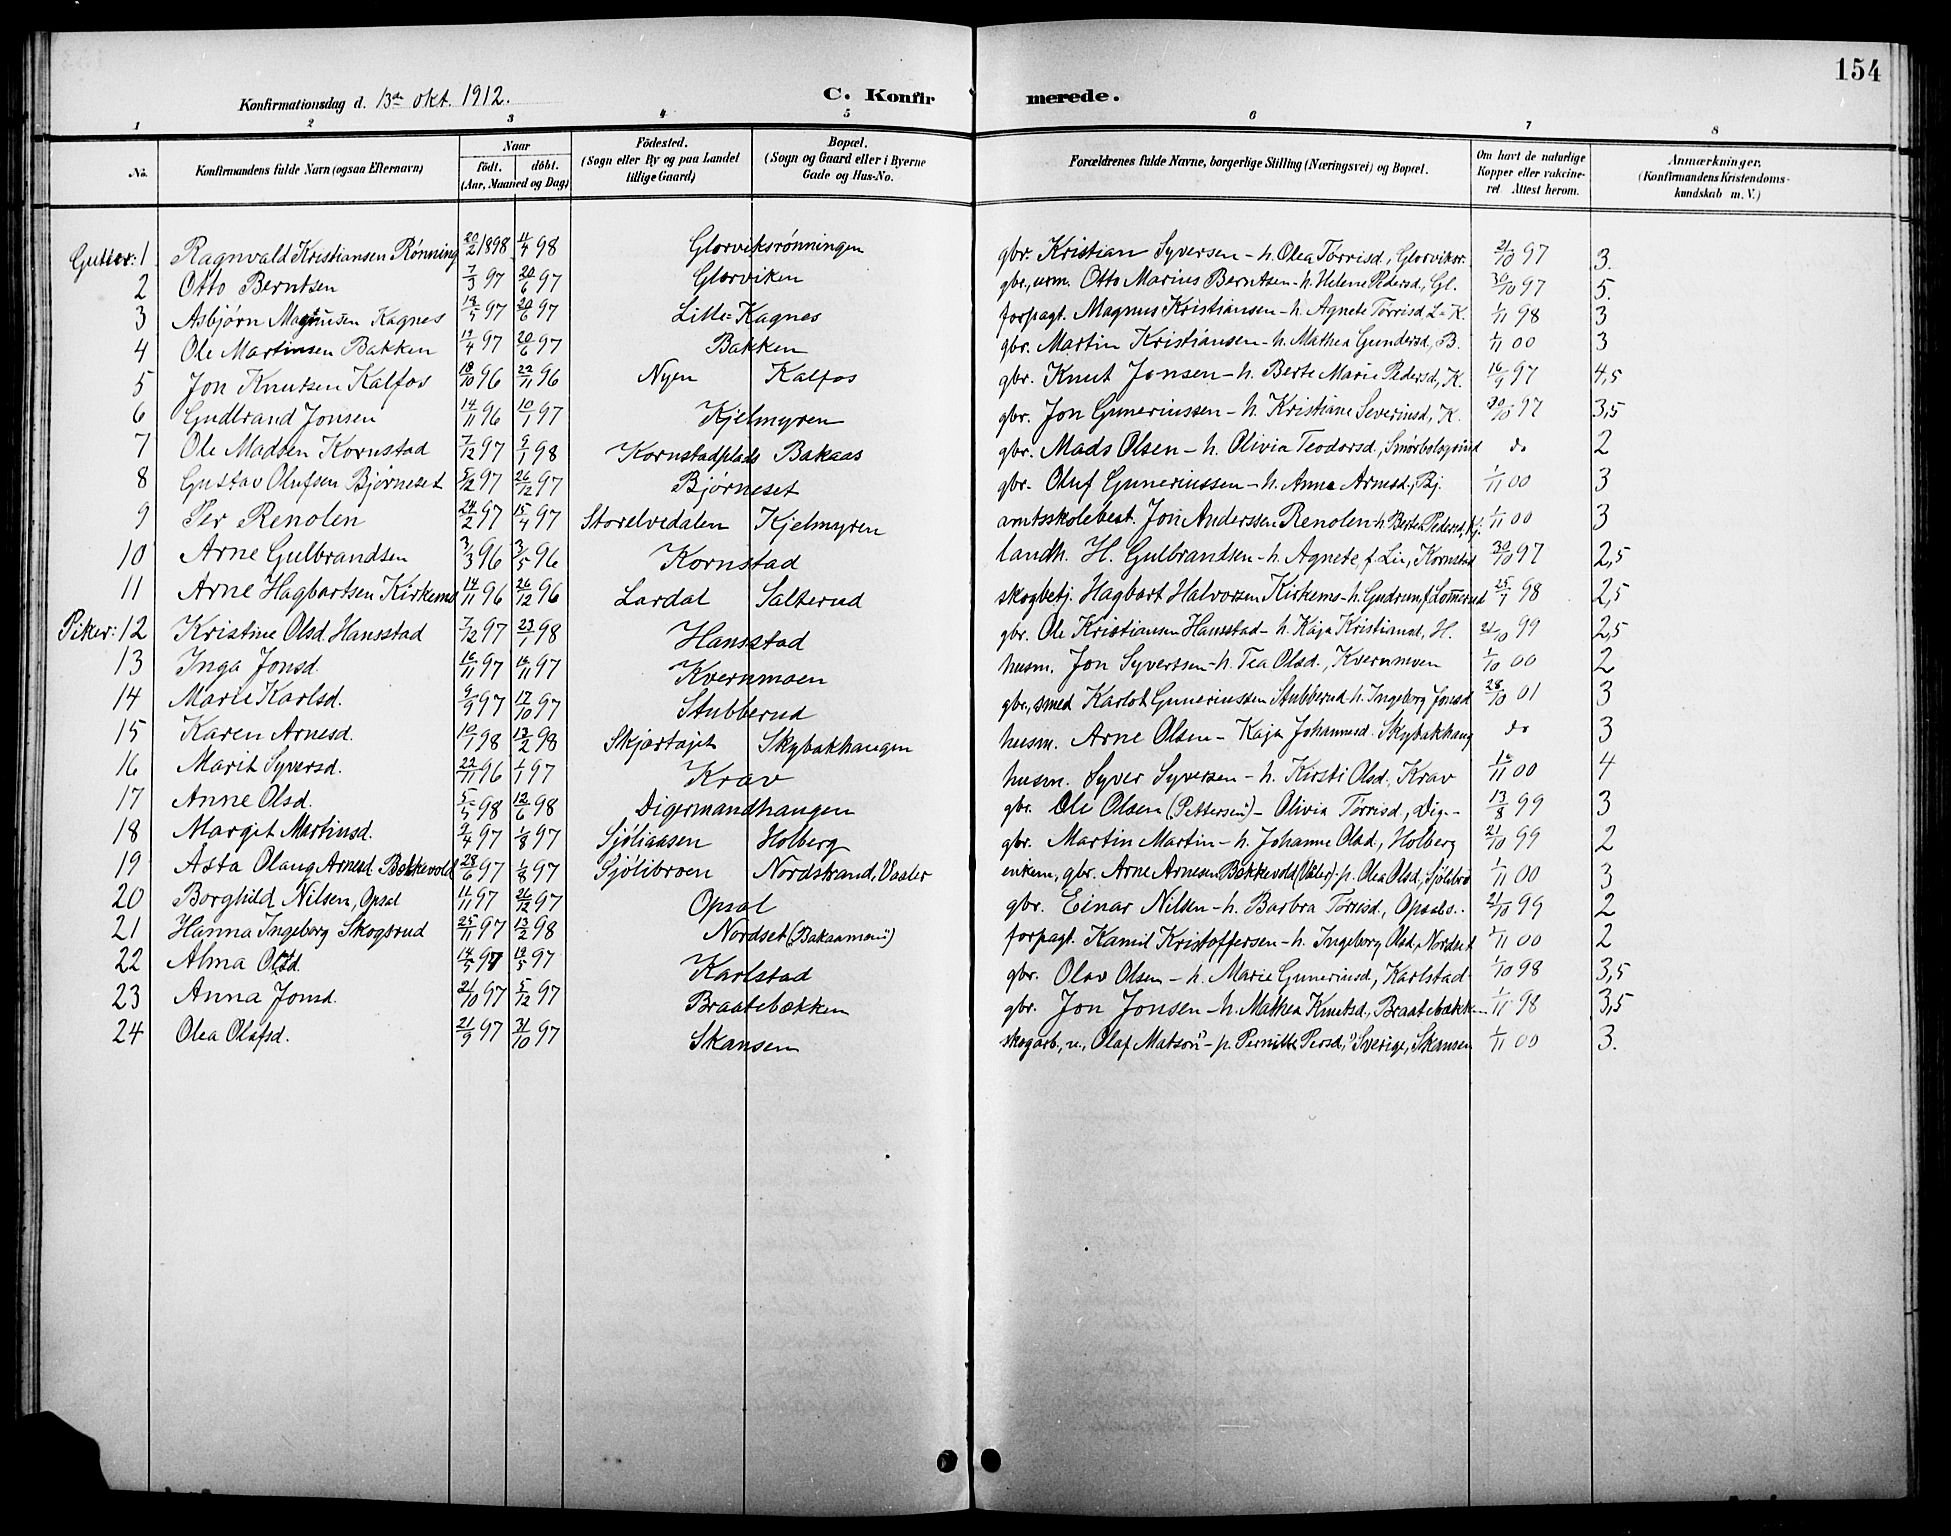 154
Konfirmationsdag d. 13de okt. 1912. C. Konfirmerede.
1 2 3 4 5 6 7 8
No. Konfirmandens fulde Navn (ogsaa Efternavn) Naar födt. döbt. (Aar, Maaned og Dag) Födested. (Sogn eller By og paa Landet tillige Gaard) Bopæl. (Sogn og Gaard eller i Byerne Gade og Hus-No. Forældrenes fulde Navne, borgerlige Stilling (Næringsvei) og Bopæl. Om havt de naturlige Kopper eller vakcineret Attest herom. Anmærkninger. (Konfirmandens Kristendomskundskab m. V.)
Gutter: 1 Ragnvald Kristiansen Rønning 20/2 1898 11/4 98 Glorviksrønningen gbr. Kristian Syversen - h. Olea Törrisd., Glorviksr. 21/10 97 3.
2 Otto Berntsen 7/3 97 20/6 97 Glorviken gbr., urm. Otto Marius Berntsen - h. Helene Pedersd., Gl. 30/10 97 5.
3 Asbjørn Magnussen Kagnes 19/5 97 20/6 97 Lille-Kagnes forpagt. Magnus Kristiansen - h. Agnete Törrisd. L-K. 1/11 98 3
4 Ole Martinsen Bakken 12/4 97 20/6 97 Bakken gbr. Martin Kristiansen - h. Mathea Gundersd., B. 1/11 00 3
5 Jon Knutsen Kalfos 18/10 96 22/11 96 Nyen Kalfos gbr. Knut Jonsen - h. Berte Marie Pedersd., K. 16/9 97 4,5
6 Gudbrand Jonsen 14/11 96 10/1 97 Kjelmyren gbr. Jon Gunerinssen - h. Kristiane Severinsd., K. 30/10 97 3,5
7 Ole Madsen Kornstad 7/12 97 9/1 98 Kornstadplads Bakaas gbr. Mads Olsen - h. Olivia Teodorsd., do 2
8 Gustav Olufsen Bjørneset 5/12 97 26/12 97 Bjørneset gbr. Oluf Gunerinssen - h. Anna Arnesd., Bj. 1/11 00 3
9 Per Renolen 24/2 97 15/4 97 Storelvedalen Kjelmyren amtsskolebest. Jon Anderssen Renolen - h. Berte Pedersd., Kj. 1/11 00 3
10 Arne Gulbrandsen 3/3 96 3/5 96 Kornstad landh. H. Gulbrandsen - h. Agnete, f. Lie, Kornstad 30/10 97 2,5
11 Arne Hagbartsen Kirkemo 14/11 96 26/12 96 Lardal Salterud skogbetj. Hagbart Halvorsen Kirkemo - h. Gudrun f. Lommerud 25/1 98 2,5
Piker: 12 Kristine Olsd. Hansstad 7/12 97 23/1 98 Hansstad gbr. Ole Kristiansen Hansstad - h. Kaja Kristiansd., H. 21/10 99 2,5
13 Inga Jonsd. 16/11 97 16/11 97 Kvernmoen husm. Jon Syvertsen - h. Tea Olsd., Kvernmoen 1/10 00 2
14 Marie Karlsd. 9/9 97 17/10 97 Stubberud gbr., smed Karlot Gunerinssen Stubberud h. Ingeborg Jonsd. 28/10 01 3
15 Karen Arnesd. 10/1 98 13/2 98 Skjærtajet Skybakhaugen husm. Arne Olsen - Kaja Johannesd. Skybakhaug do 3
16 Marit Syversd. 22/11 96 1/1 97 Krav husm. Syver Syversen - h. Kirsti Olsd., Krav 16/11 00 4
17 Anne Olsd. 5/5 98 12/6 98 Digermandhaugen gbr. Ole Olsen (Pettersen) - Olivia Törrisd., Dig.- 13/8 99 3
18 Margit Martinsd. 2/4 97 1/8 97 Sjöliaasen Holberg gbr. Martin Martin - h. Johanne Olsd., Holberg 21/10 99 2
19 Asta Olaug Arnesd. Bakkevold 28/6 97 1/8 97 Sjölibroen Nordstrand, Vaaler enkem., gbr. Arne Arnesen Bakkevold (Våler) - p. Olea Olsd., Sjölibro 1/11 00 3
20 Borghild Nilsen, Opsal 11/11 97 26/12 97 Opsal gbr. Einar Nilsen - h. Barbra Törrisd., Opsals.. 21/10 99 2
21 Hanna Ingeborg Skogsrud 25/11 97 13/2 98 Nordset (Bakaamoen) forpagt. Kamil Kristoffersen - h. Ingeborg Olsd., Nordset 1/11 00 2
22 Alma Olsd. 14/5 97 19/5 97 Karlstad gbr. Olav Olsen - h. Marie Gunerinsd., Karlstad 1/10 98 3,5
23 Anna Jonsd. 21/10 97 5/12 97 Braatebækken gbr. Jon Jonsen - h. Mathea Knutsd., Braatebækken 1/11 98 3,5
24 Olea Olafsd. 21/9 97 31/10 97 Skansen skogarb., u., Olaf Matson - p. Pernille Persd., Sverige, Skansen 1/11 00 3.